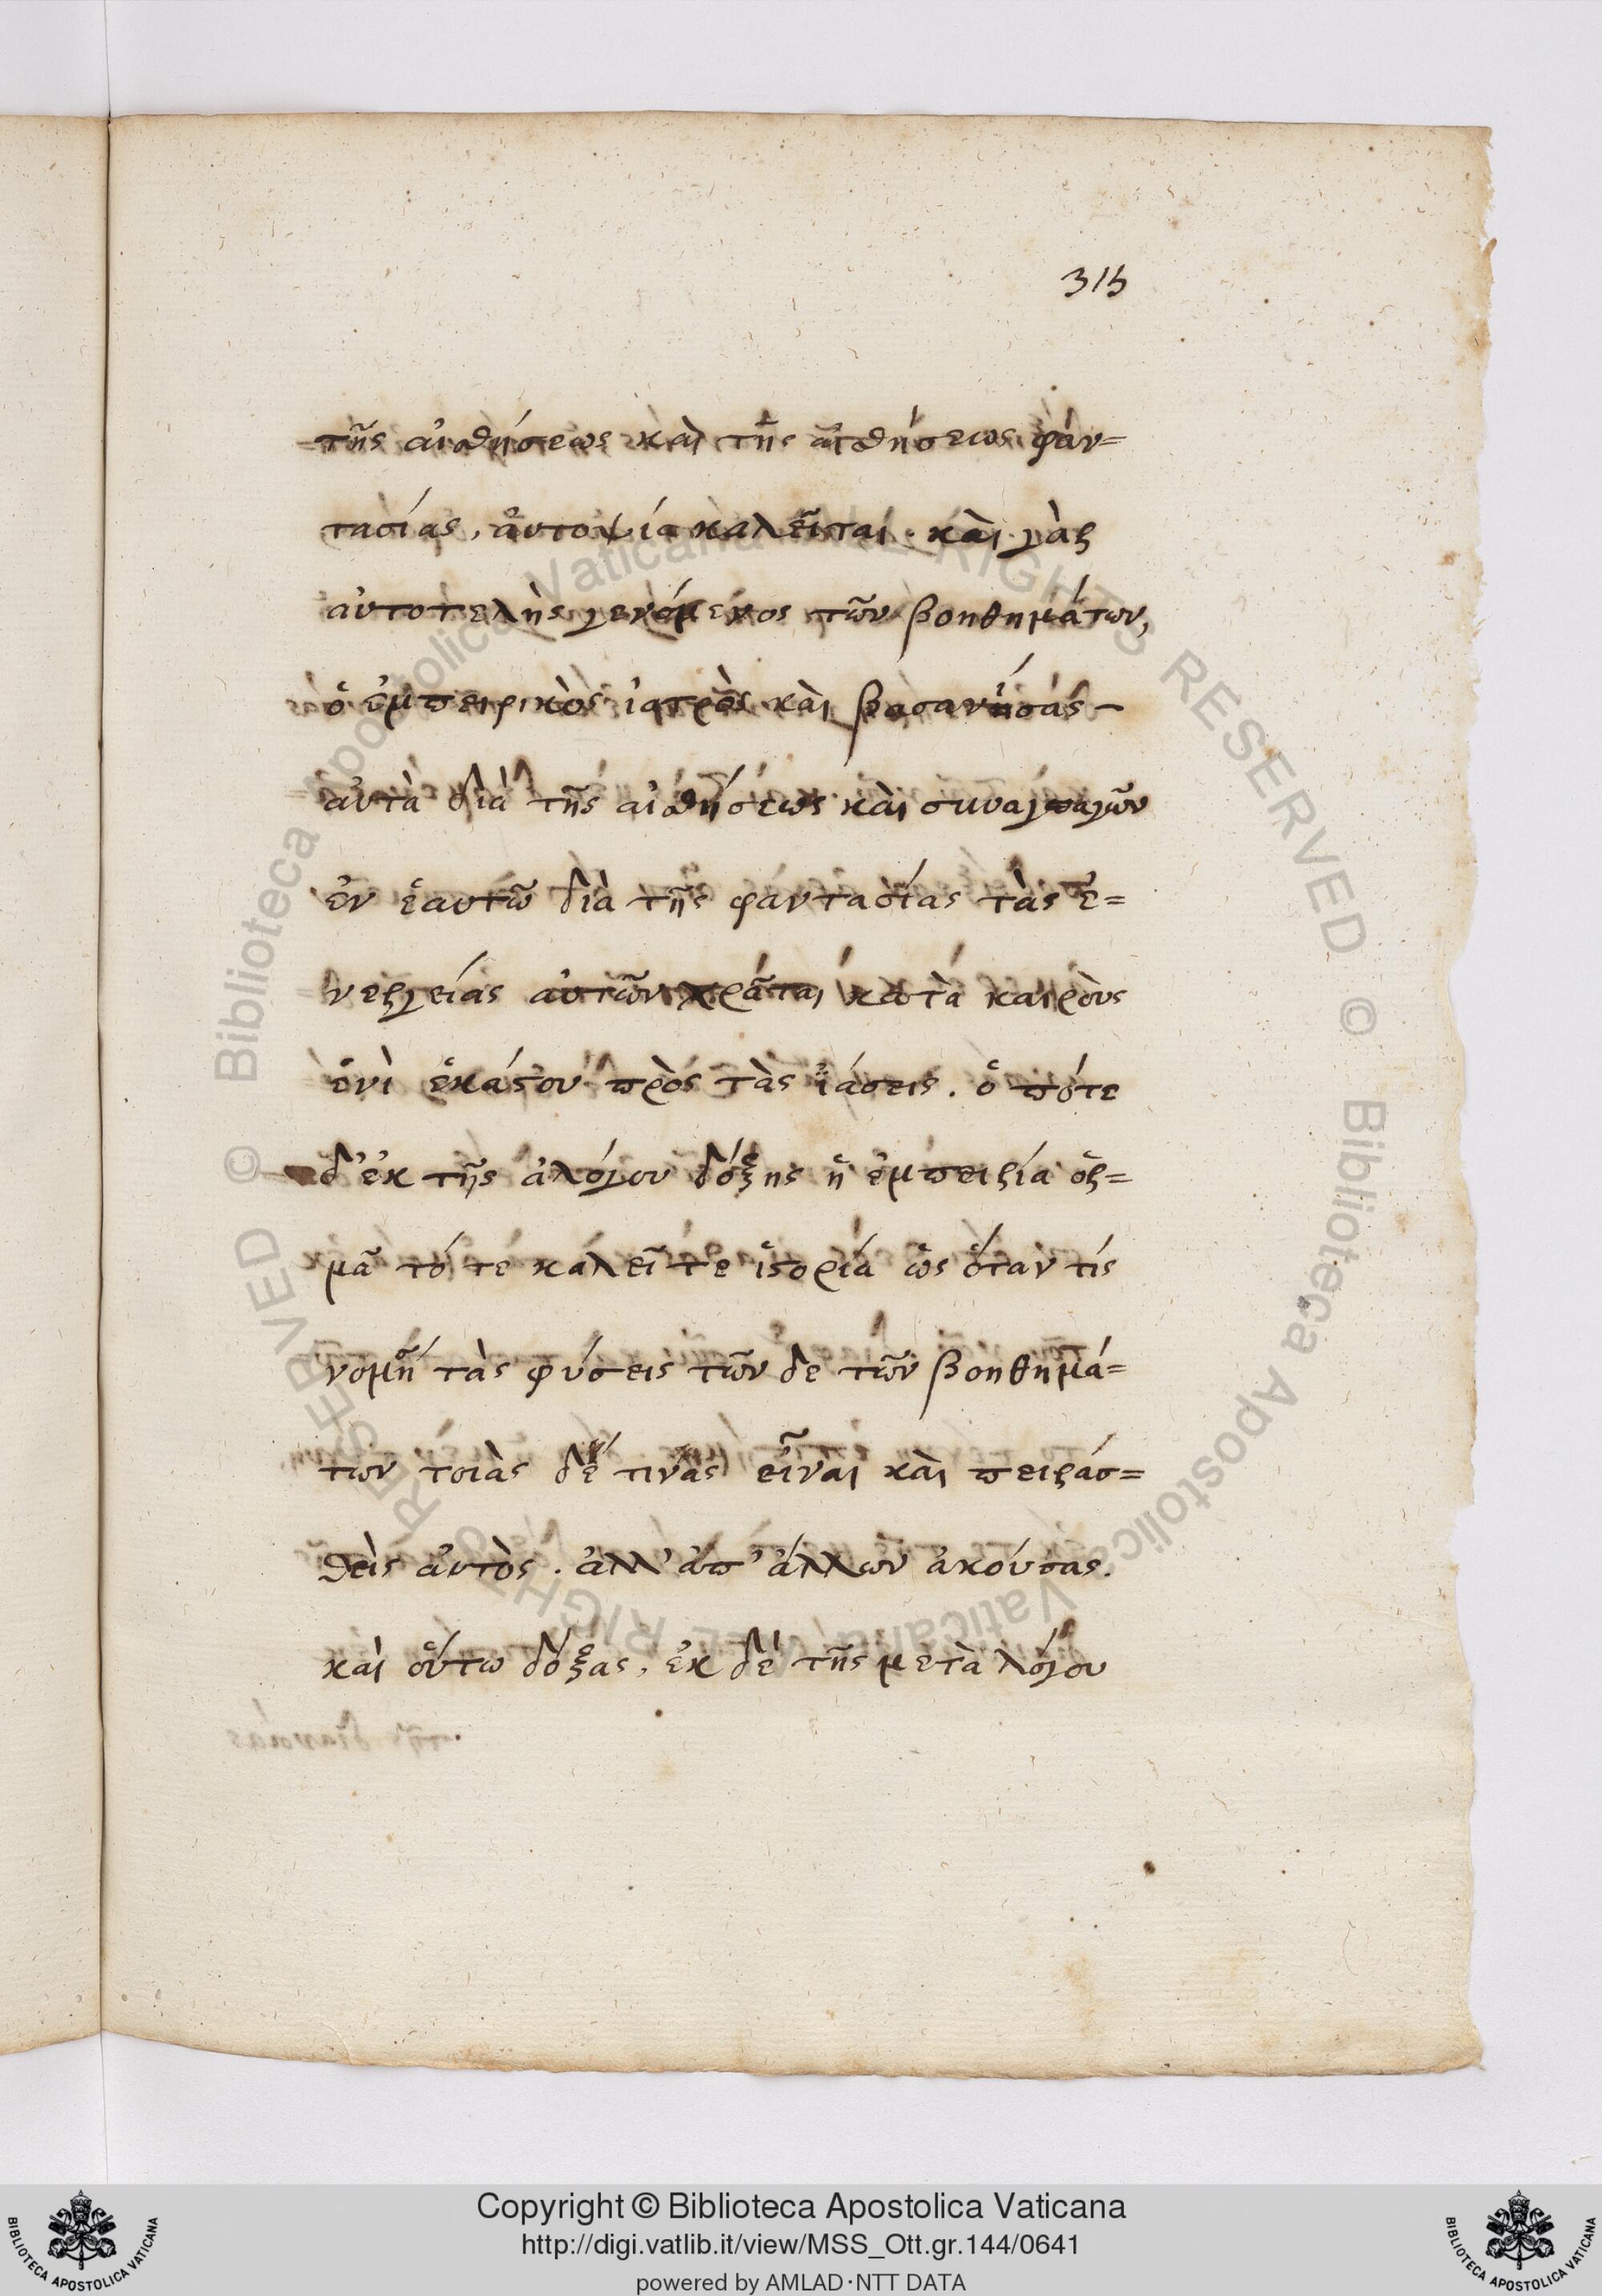 315
τῆς αἰσθήσεως καὶ τῆς αἰσθήσεως φάν=
τασίας, ἀυτοψία καλεῖται. κὰι γὰρ
αὐτοτελὴς γενόμενος τῶν βοηθημάτων,
ὁ ἐμπειρικὸς ἰατρὸς κὰι βασανίσας
αὐτὰ διὰ τῆς αἰσθήσεως κὰι συναγαγῶν
ἐν ἑαυτῶ διὰ τῆς φάντασίας τὰς ἐ=
νεργείας αυτῶν χρᾶται κατὰ καιροὺς
ἑνὶ ἑκάστου πρὸς τὰς ἰάσεις. ὁ πότε
δ' ἐκ τῆς ἀλόγου δόξης ἡ ἐμπειρία ὁρ=
μᾶ τό τε καλεῖ τε ἱστορία ὡς ὅταν τίς
νομῆ τὰς φύσεις τῶν δε τῶν βοηθημά=
των τοιὰς δέ τινὰς εἶναι κὰι πειράσ=
θεὶς ἀυτὸς. ἀλλ' ἀπ' ἄλλων ἀκούσας.
καὶ οὕτω δόξας, ἐκ δὲ τῆς μετὰ λόγου
Copyright © Biblioteca Apostolica Vaticana
http://digi.vatlib.it/view/MSS_Ott.gr.144/0641
powered by AMLAD·NTT DATA
BIBLIOTECA APOSTOLICA VATICANA
BIBLIOTECA APOSTOLICA VATICANA
© Biblioteca Apostolica Vaticana ALL RIGHTS RESERVED
© Biblioteca Apostolica Vaticana ALL RIGHTS RESERVED